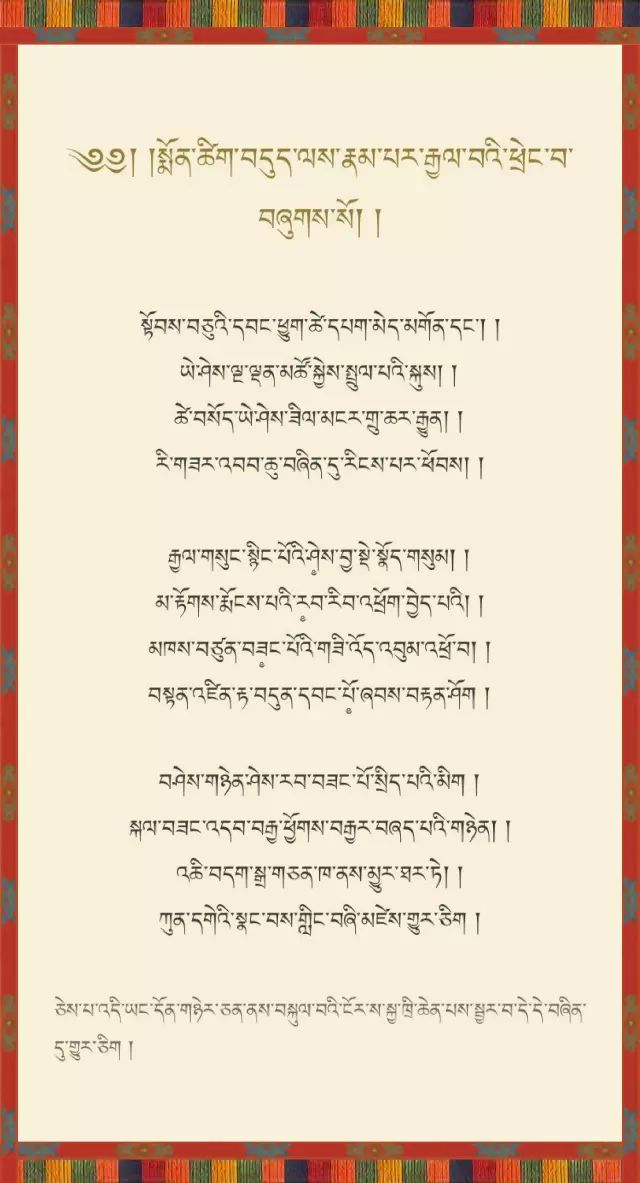 ༄༅། །སྨོན་ཚིག་བདུད་ལས་རྣམ་པར་རྒྱལ་བའི་ཕྲེང་བ་
བཞུགས་སོ། །
སྟོབས་བཅུའི་དབང་ཕྱུག་ཚེ་དཔག་མེད་མགོན་དང་། །
ཡེ་ཤེས་ལྔ་ལྡན་མཚོ་སྐྱེས་སྤྲུལ་པའི་སྐུས། །
ཚེ་བསོད་ཡེ་ཤེས་ཟིལ་མངར་གྲུ་ཆར་རྒྱུན། །
རི་གཟར་འབབ་ཆུ་བཞིན་དུ་རིངས་པར་ཕོབས། །
རྒྱལ་གསུང་སྙིང་པོའི་ཤེ༷ས་བྱ་སྡེ་སྣོད་གསུམ། །
མ་རྟོགས་རྨོངས་པའི་ར༷བ་རིབ་འཕྲོག་བྱེད་པའི། །
མཁས་བཙུན་བཟ༷ང་པོའི་གཟི་འོད་འབུམ་འཕྲོ་བ། །
བསྟན་འཛིན་རྟ་བདུན་དབང་པོ༷་ཞབས་བརྟན་ཤོག །
བཤེས་གཉེན་ཤེས་རབ་བཟང་པོ་སྲིད་པའི་མིག །
སྐལ་བཟང་འདབ་བརྒྱ་ཕྱོགས་བརྒྱར་བཞད་པའི་གཉེན། །
འཆི་བདག་སྒྲ་གཅན་ཁ་ནས་མྱུར་ཐར་ཏེ། །
ཀུན་དགེའི་སྣང་བས་གླིང་བཞི་མཛེས་གྱུར་ཅིག །
ཅེས་པ་འདི་ཡང་དོན་གཉེར་ཅན་ནས་བསྐུལ་བའི་ངོར་ས་སྐྱ་ཁྲི་ཆེན་པས་སྦྱར་བ་དེ་དེ་བཞིན་
དུ་གྱུར་ཅིག །